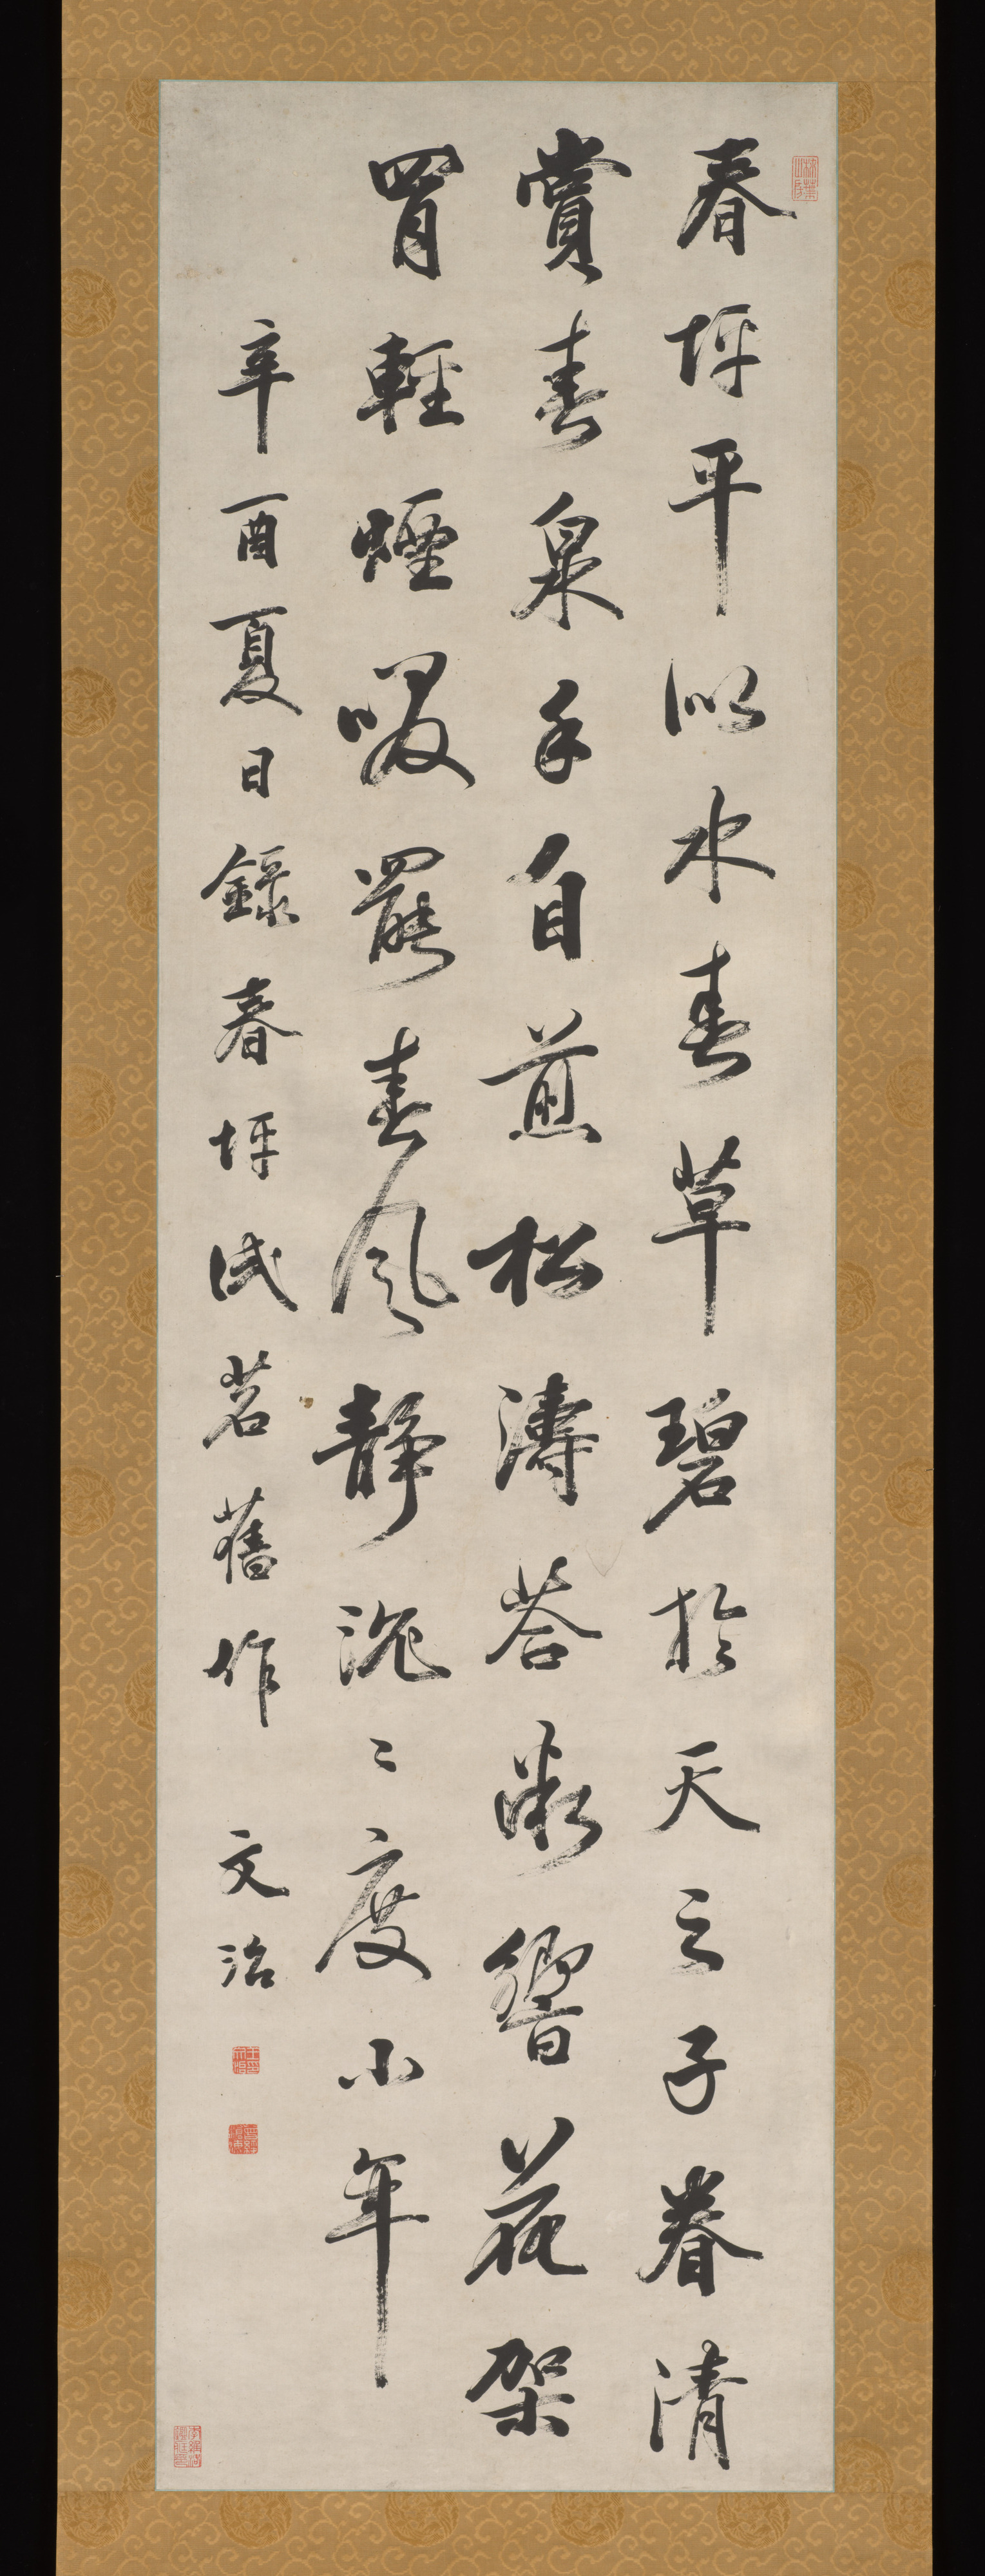 春坪平似水春草碧於天之子眷清
賞春泉手自煎松濤荅微響花架
罥輕煙啜罷春風靜沉〻度小年
辛酉夏日錄春坪試茗舊作 文治